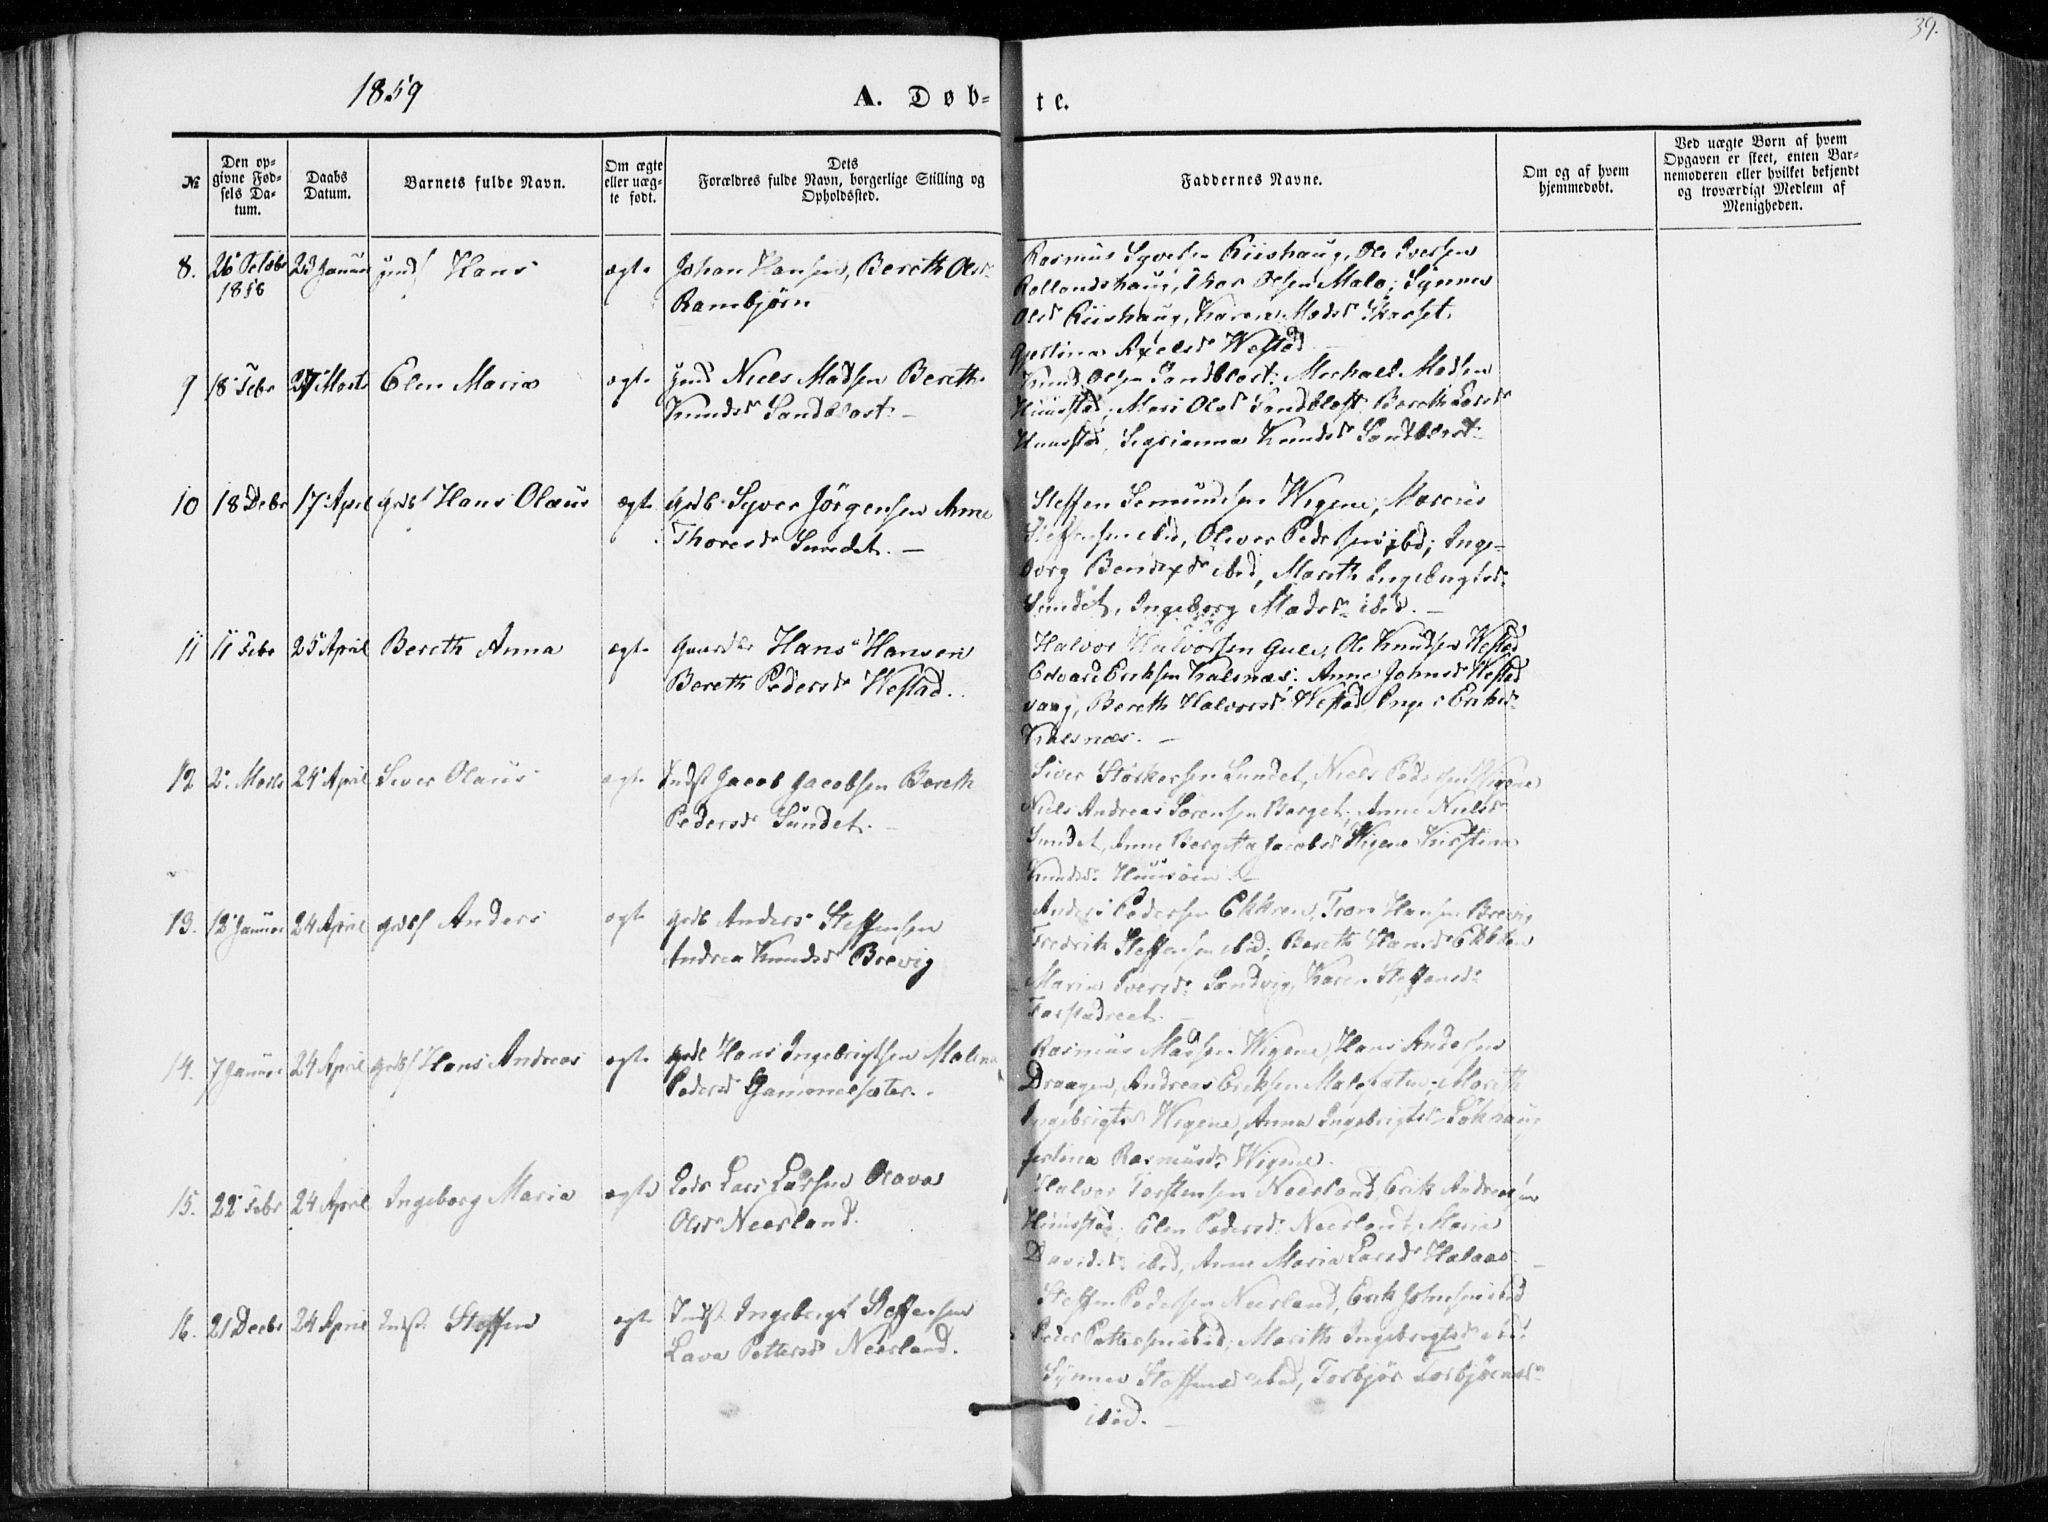 39.
1859
A. Døb- te.
№
Den op-
givne Fød-
sels Da-
tum.
Daabs
Datum.
Barnets fulde Navn.
Om ægte
eller uæg-
te født.
Dets
Forældres fulde Navn, borgerlige Stilling og
Opholdssted.
Faddernes Navne.
Om og af hvem
hjemmedøbt.
Ved uægte Børn af hvem
Opgaven er skeet, enten Bar-
nemoderen eller hvilket bekjendt
og troværdigt Medlem af
Menigheden.
8. 26 Octobr 23 Januar Hans ægte Johan Hansen, Bereth Olsd.
1858 Rambjørn
Rasmus Syvertsen Riishaug, Ole Iversen
Rollandshaug, Thor Olsen Malo; Synnev
Olsd Riishaug, Karen Madsd
Axelsd Westad
9 18 Febr 27 Marts Elen Maria ægte Niels Madsen Bereth
Knudsd Sandblaast. -
Knud Olsen Sandblast; Michael Madsen
Huustad; Mari Olsd Sandblast, Bereth Larsd
Huustad, Knudsd Sandblast
10 18 Debr 17 April grdb Hans Olaus ægte Grdb Syver Jörgensen Anne
Thoresd Sundet. -
Steffen Semundsen Wigene, Marcus
Steffensen ibid, Oliver Pedersen ibd; Inge-
borg Bendixd ibid, Mareth Ingebrigtsd
Sundet, Ingeborg Madsd ibid. -
11 11 Febr 25 April Bereth Anna ægte Hans Hansen
Bereth Pedersd Westad.
Halvor Halvorsen Gule, Ole Knudsen Westad
Edvard Eriksen Kalsnæs; Anne Johnsd Westad
vaag, Bereth Halvorsd Westad, Inger Eriksd
Kalsnæs. -
12 2. Marts 24 April Siver Olaus ægte Indst Jacob Jacobsen Bereth
Pedersd Sundet. -
Siver Størkersen Sundet, Niels Pedersen Wigene
Niels Andreas Sörensen Berget; Anne Nielsd
Sundet, Anne Bergitta Jacobsd Wigene Kirstina
Knudsd Huusöen
13. 12 Januar 24 April grdb Anders ægte grdb Anders Steffensen
Andrea Knudsd Brevig
Anders Pedersen Ekkren, Tron Hansen Brevig
Fredrik Steffensen ibid; Bereth Hansd Ekkren
Maria Iversd Sandvig, Karen Steffensd
Farstadreet -
14. 7 Januar 24 April grdb Hans Andreas ægte grdb Hans Ingebrigtsen Malena
Pedersd Gammelsæter.
Rasmus Madsen Wigene, Hans Andersen
Draagen, Andreas Eriksen Malesæter; Mareth
Ingebrigtsd Wigene, Anna Ingebrigtsd Lökhaug
Rasmusd Wigene.
15. 22 Febr 24 April Ingeborg Maria ægte Lars Larsen Olava
Olsd Neerland.
Halvor Torstensen Neerland, Erik Andreasen
Huustad; Elen Pedersd Neerland Maria
Davidsd ibid, Anne Maria Larsd Halaas -
16. 21 Decbr 24 April Indst. Steffen ægte Indst. Ingebrigt Steffensen
Lava Pettersd Neerland.
Steffen Pedersen Neerland, Erik Johnsen ibid
Peder Pettersen ibid; Marith Ingebrigtsd ibd
Synnev Steffensd ibid, Torbjør Torbjørnsd
ibid. -